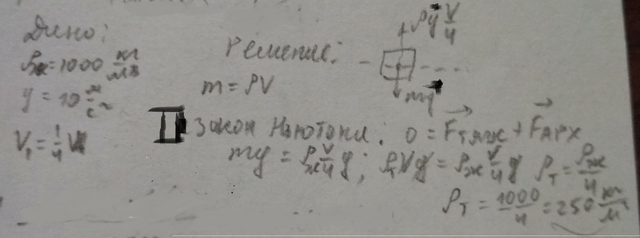 Дано:
ρж = 1000 кг/м³
g = 10 м/с²
V₁ = 1/4 V
Решение:
m = ρV
ρg V/4
mg
II Закон Ньютона: 0 = Fтяж + Fарх
mg = ρж V/4 g; ρтVg = ρж V/4 g ρт = ρж/4
ρт = 1000/4 = 250 кг/м³